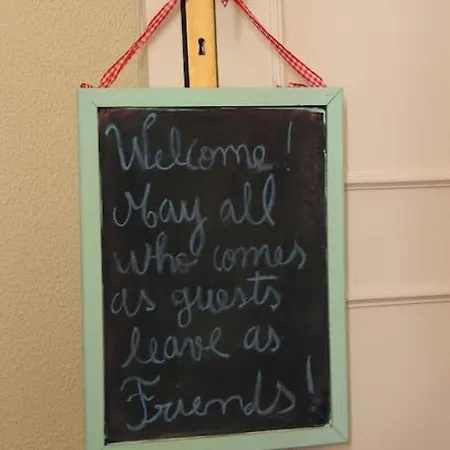 Welcome!
May all
who comes
as guests
leave as
Friends!